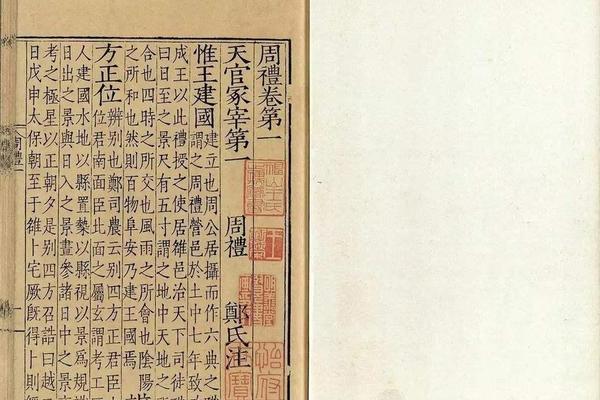 周禮卷第一
天官冢宰第一 周禮 鄭氏注
惟王建國
建立也周公居攝而作六典之職
謂之周禮營邑於土中七年致
成王以此禮授之使居雒邑治天下司徒職
曰日至之景尺有五寸謂之地中天地之所
合也四時之所交也風雨之所會也陰陽
之所和也然則百物阜安乃建王國焉
方正位
辨別也鄭司農云別四方正君臣
位君南面臣北面之屬玄謂考工
人建國水地以縣置槷以縣視以景爲規
日出之景與日入之景晝參諸日中之景
考之極星以正朝夕是別四方召誥曰越
日戊申太保朝至于雒卜宅厥既得卜則經
怡府
寶
周禮一